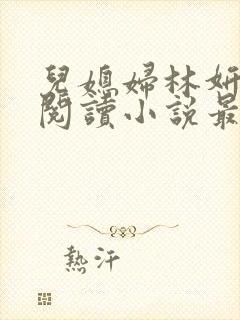 兒媳婦林妍
閱讀小說最
熱汗